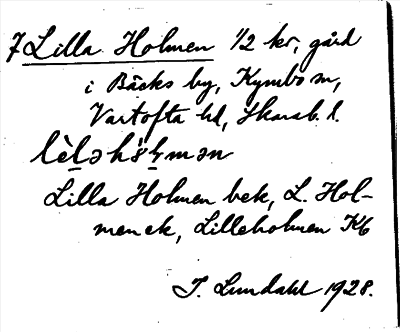 7 Lilla Holmen 1/2 kr, gård
i Bäcks by, Kymbo sn,
Vartofta hd, Skarab. l.
Lilla Holmen bek, L. Hol-
men ek, Lilleholmen Kb
J. Lundahl 1928.